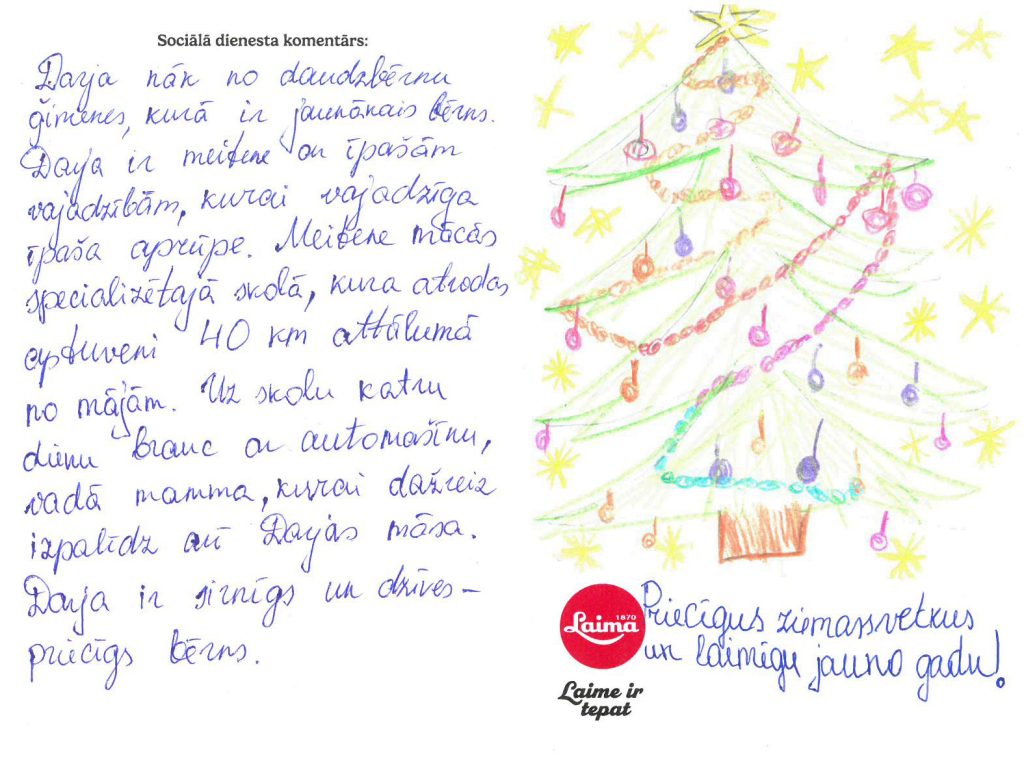 Sociālā dienesta komentārs:
Darja nāk no daudzbērnu
ģimenes, kurā ir jaunākais bērns.
Darja ir meitene ar īpašām
vajadzībām, kurai vajadzīga
īpaša aprūpe. Meitene mācās
specializētajā skolā, kura atrodas
aptuveni 40 km attālumā
no mājām. Uz skolu katru
dienu brauc ar automašīnu,
vadā mamma, kurai dažreiz
izpalīdz arī Darjas māsa.
Darja ir sirnīgs un dzīves-
priecīgs bērns.
1870
Laima
Laime ir
tepat
Priecīgus ziemassvetkus
un laimīgu jauno gadu!